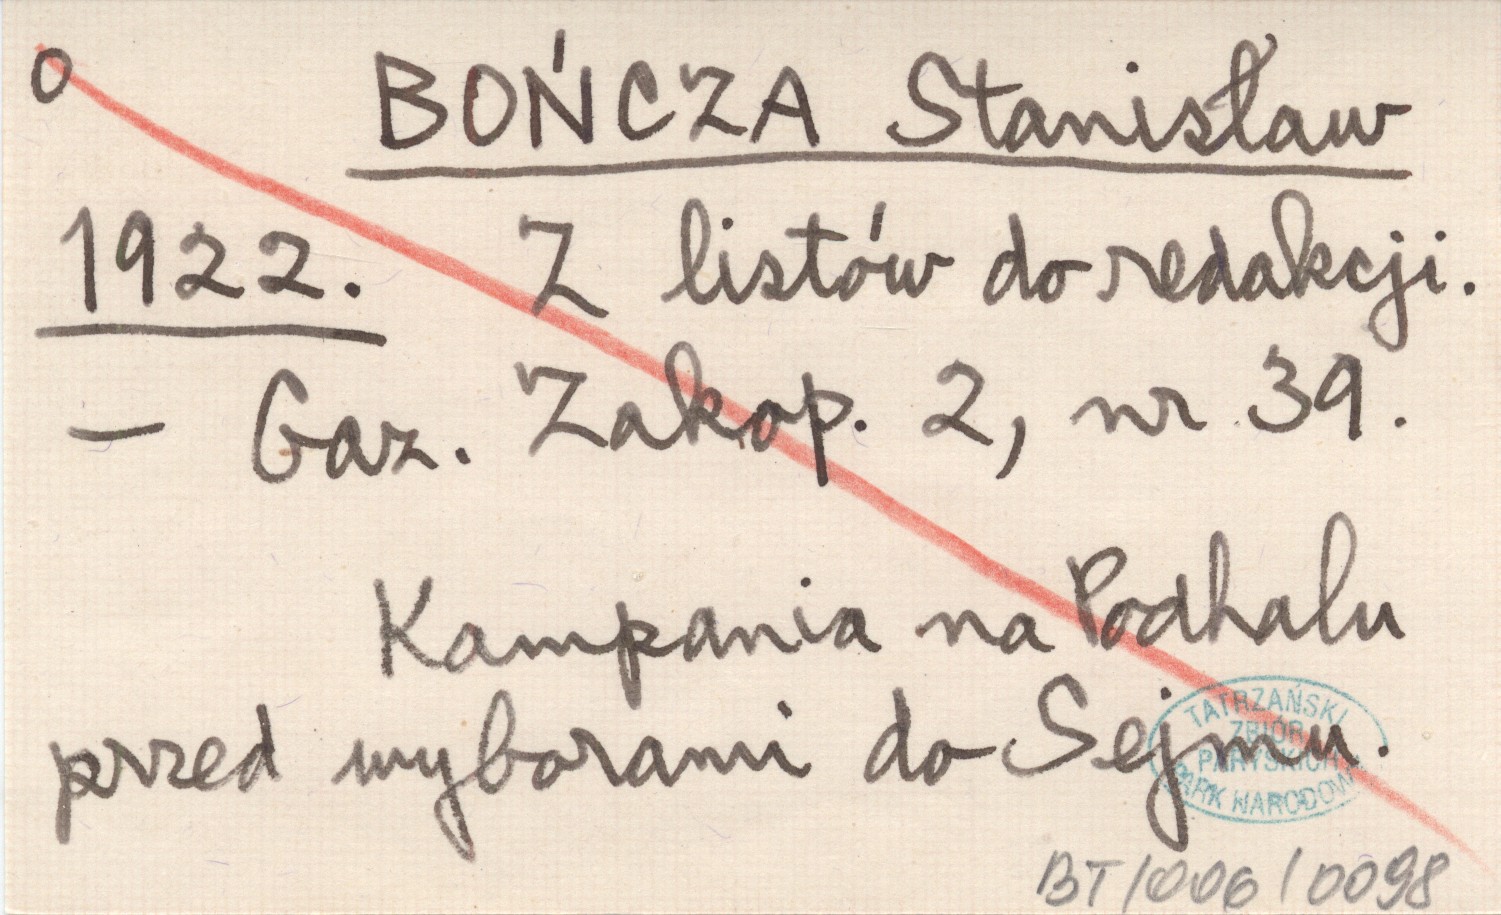 o BOŃCZA Stanisław
1922. Z listów do redakcji.
— Gaz. Zakop. 2, nr 39.
Kampania na Podhalu
przed wyborami do Sejmu.
TATRZAŃSKI
ZBIÓR
PARYSKICH
PARK NARODOWY
BT/006/0098